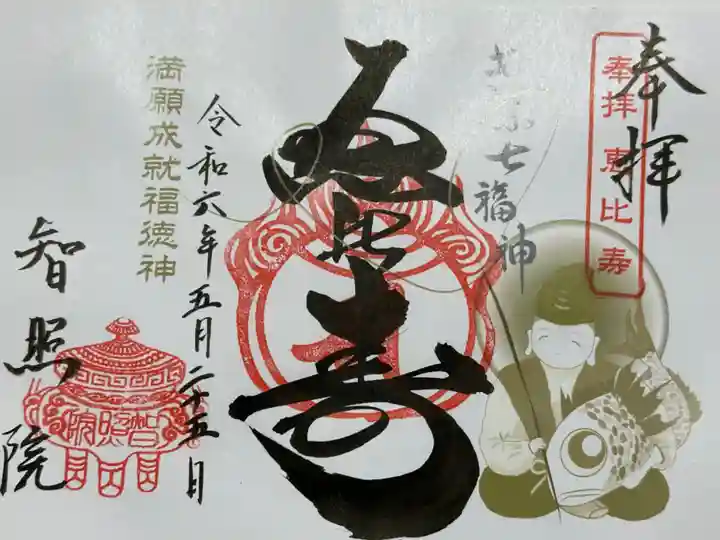 奉拝
奉拝 恵比寿
七福神
恵比寿
令和六年五月二十五日
満願成就福徳神
智照院
智照院